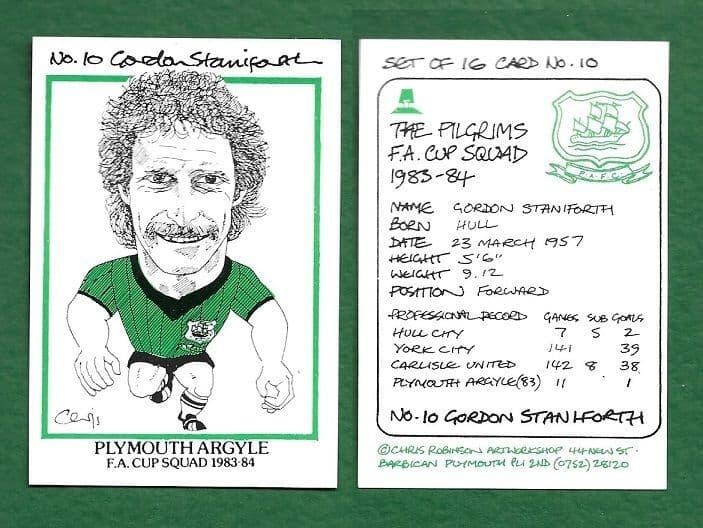 No. 10 Gordon Staniforth
Chris
PLYMOUTH ARGYLE
F.A. CUP SQUAD 1983-84
SET OF 16 CARD No. 10
THE PILGRIMS
F.A. CUP SQUAD
1983-84
P.A.F.C.
NAME GORDON STANIFORTH
BORN HULL
DATE 23 MARCH 1957
HEIGHT 5'6"
WEIGHT 9.12
POSITION FORWARD
PROFESSIONAL RECORD GAMES SUB GOALS
HULL CITY 7 5 2
YORK CITY 141 39
CARLISLE UNITED 142 8 38
PLYMOUTH ARGYLE (83) 11 1
No. 10 GORDON STANIFORTH
© CHRIS ROBINSON ARTWORKSHOP 44 NEW ST.
BARBICAN PLYMOUTH PL1 2ND (0752) 28120